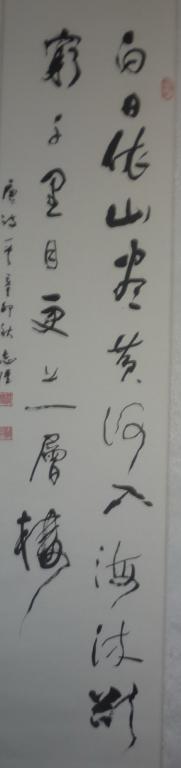 白日依山盡黄河入海流欲
窮千里目更上一層樓
唐詩一首辛卯秋志